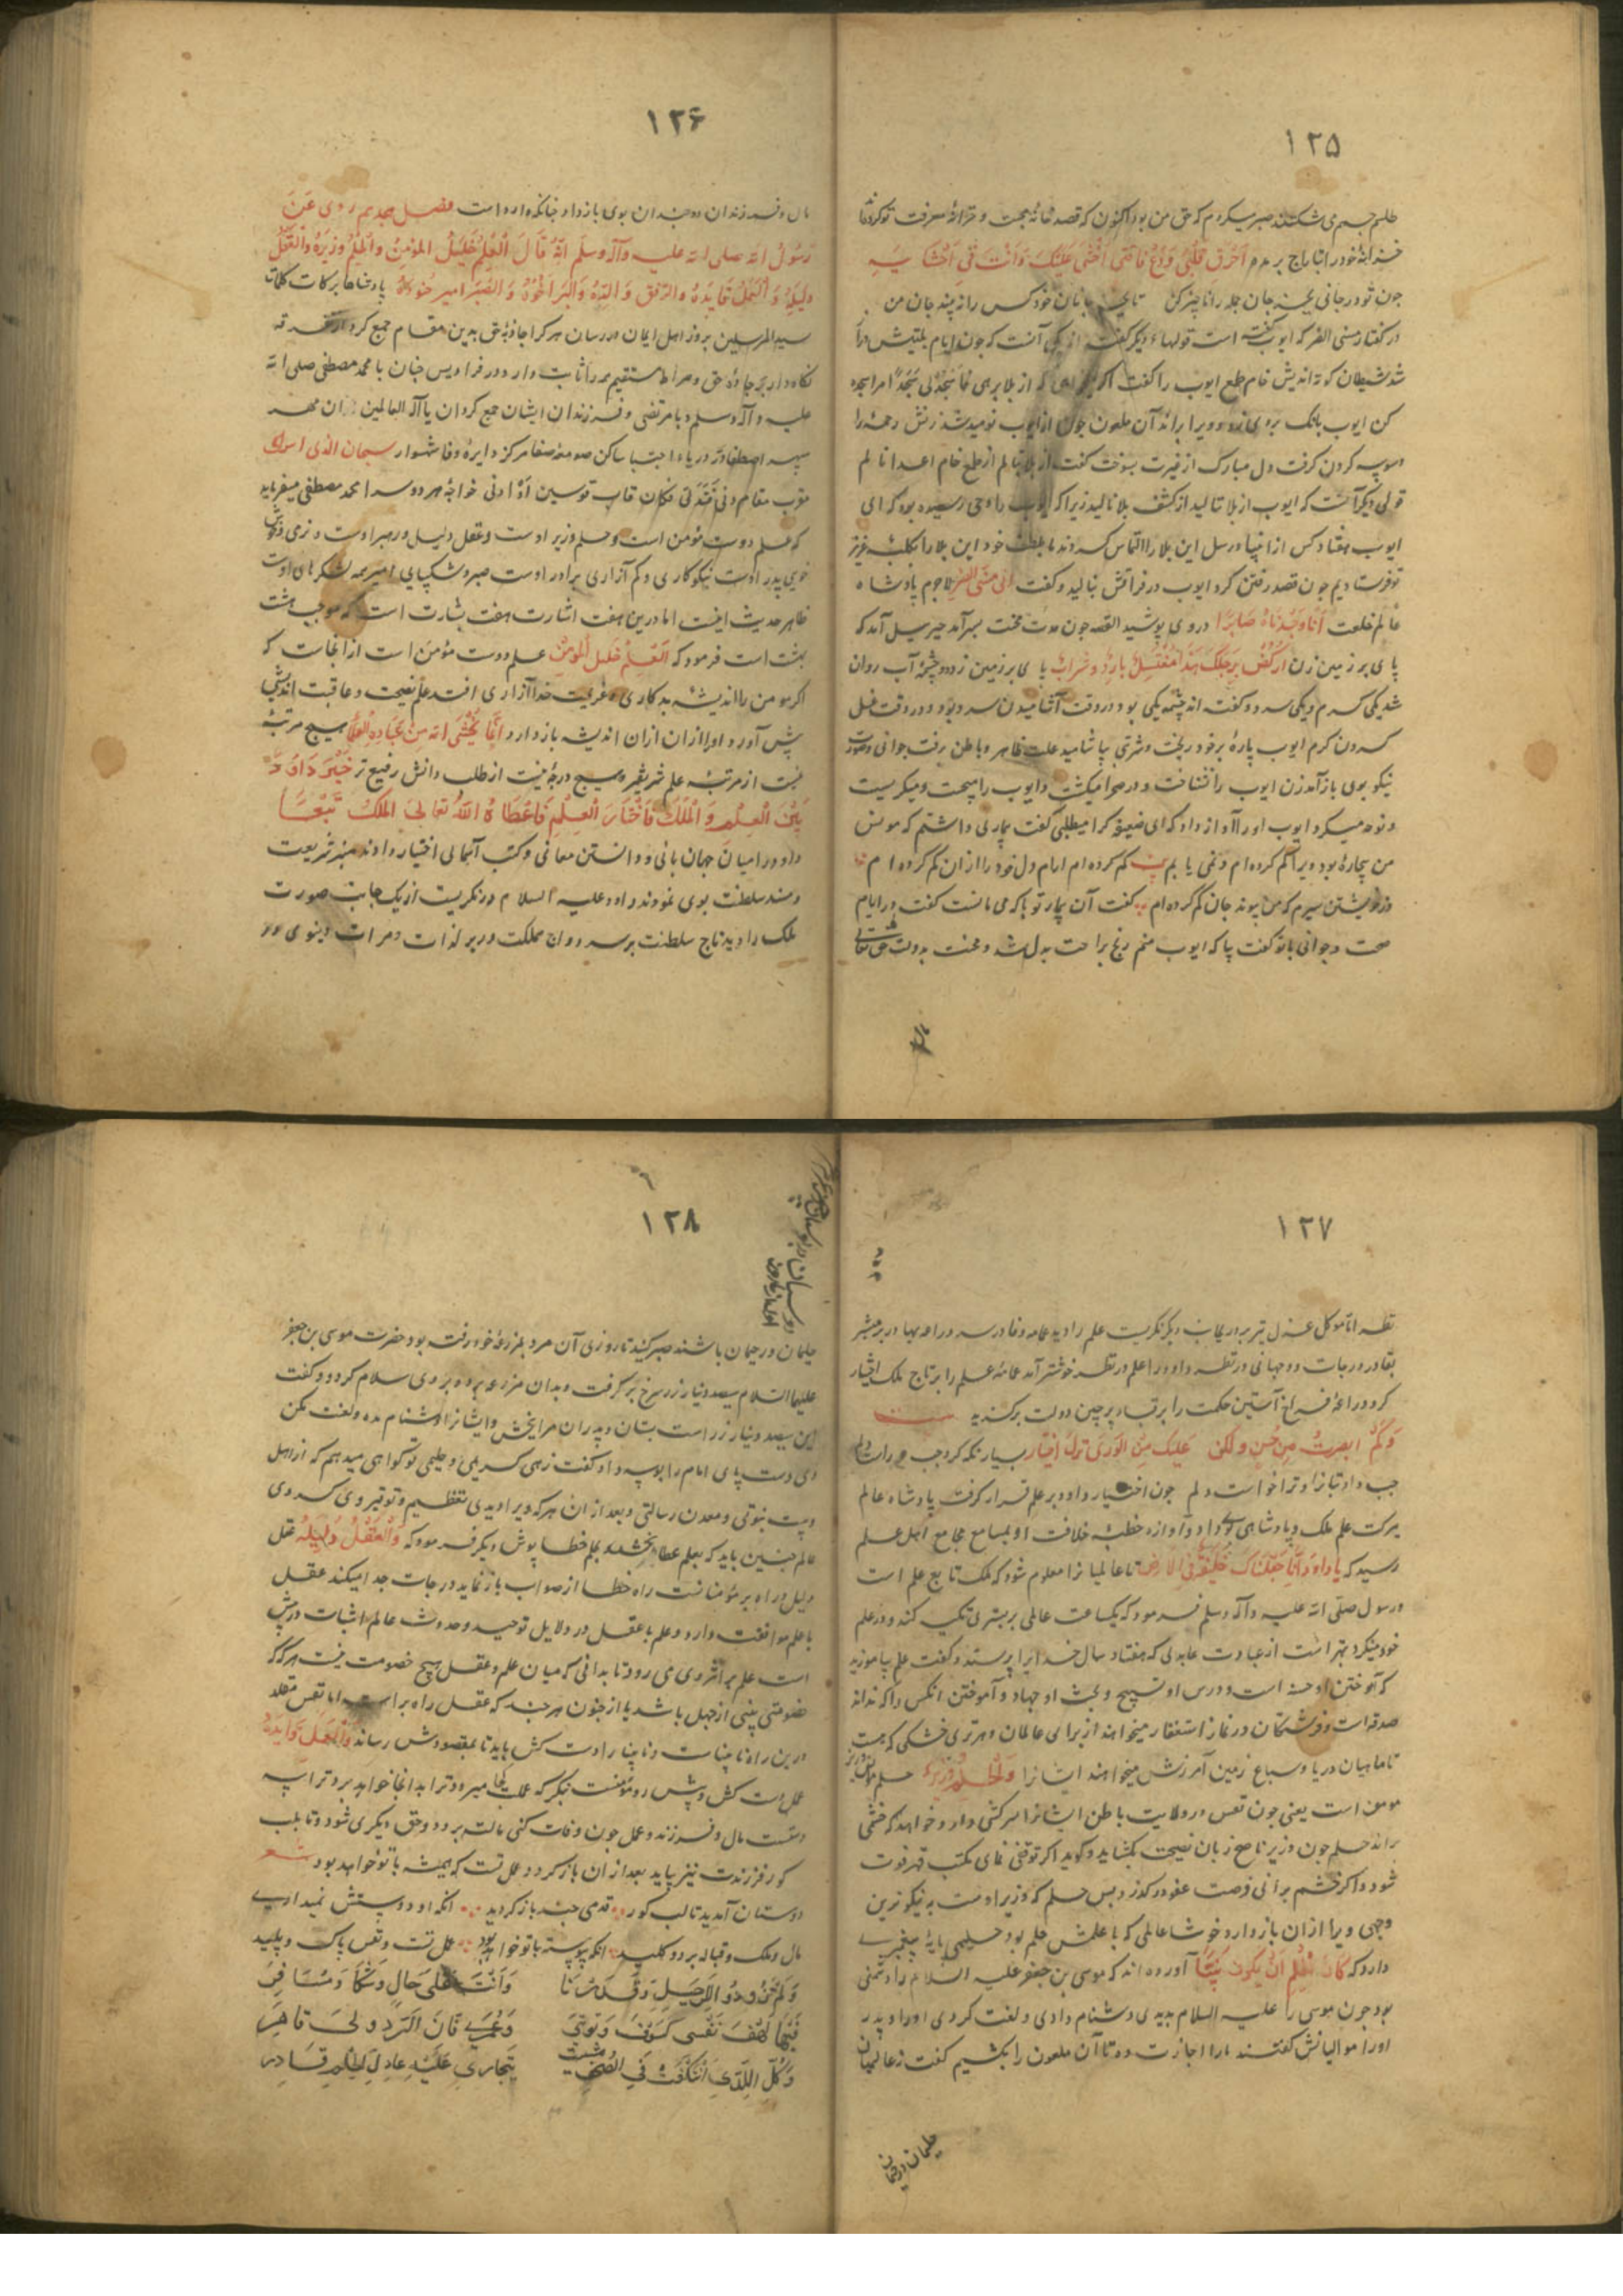 ۱۲۵
صبر میکردم که حق من بود اکنون که قصد خانهٔ محبت و خزانهٔ معرفت تو کرده
خزانهٔ خود را بتاراج برمده اَحْرِقْ قَلْبِی
چون تو در جانی
در گفتار مسنی الضر که ایوب گفت است قولهاء دیگر گفته اند یکی آنست که چون ایام بلیتش دراز
شد شیطان کوته اندیش خام طمع ایوب را گفت اگر از بلا برهی فاسجد لی سجدًا مرا سجده
کن ایوب بانک بروی زد و ویرا براند آن ملعون چون از ایوب نومید شد زنش رحمه را
وسوسه کردن گرفت دل مبارک از غیرت بسوخت گفت از بلا ننالم از طمع خام اعدا نالم
قولی دیگر آنست که ایوب از بلا ننالید از کشف بلا نالید زیرا که ایوب را وحی رسیده بود که ای
ایوب هفتاد کس از انبیا و رسل این بلا را التماس کردند ما بلطف خود این بلا را بکلبهٔ عزیز
تو فرستادیم چون قصد رفتن کرد ایوب در فراقش بنالید و گفت انی مسنی الضر لاجرم پادشاه
عالم خلعت اِنّا وَجَدْناهُ صابِرًا در وی پوشید القصه چون مدت محنت بسر آمد جبرئیل آمد که
پای بر زمین زن ارْكُضْ بِرِجْلِكَ هٰذا مُغْتَسَلٌ بارِدٌ وَشَرابٌ پای بر زمین زد دو چشمهٔ آب روان
شد یکی گرم و یکی سرد و گفته اند چشمه یکی بود در وقت آشامیدن سرد بود و در وقت غسل
کردن گرم ایوب پارهٔ بر خود ریخت و شربتی بیاشامید علت ظاهر و باطن برفت جوانی و صورت
نیکو بوی باز آمد زن ایوب را نشناخت و در صحرا میگشت و ایوب را میجست و میگریست
و نوحه میکرد ایوب او را آواز داد که ای ضعیفه کرا میطلبی گفت بیماری داشتم که مونس
من بیچاره بود ویرا گم کرده‌ام و نمی یابم گم کرده‌ام دل خود را از آن گم کرده‌ام
در خویشتن سیرم که من پیوند جان گم کرده‌ام گفت آن بیمار تو با که می مانست گفت در ایام
صحت و جوانی با تو گفت بیا که ایوب منم رنج براحت بدل شد و محنت بدولت حق تعالی
مال
۱۲۶
مال و فرزندان دو چندان بوی باز داد چنانکه وارد است فصل هجدهم رُوِیَ عَنْ
رَسُولِ الله صلی الله علیه وآله وسلم اَنَّهُ قالَ اَلْعِلْمُ خَلِیلُ المُؤْمِنِ وَالْحِلْمُ وَزِیرُهُ وَالْعَقْلُ
دَلِیلُهُ وَ الْعَمَلُ قایِدُهُ وَالرِّفْقُ والِدُهُ وَالْبِرُّ اَخُوهُ وَ الصَّبْرُ امیرُ جُنُودِهِ پادشاها ببرکات کلمات
سید المرسلین بروز اهل ایمان در رسان هر کرا جاذبهٔ حق بدین مقام جمع کرد از تفرقه
نگاه دار بر جادهٔ حق و صراط مستقیم همه را ثابت دار و در فرادیس جنان با محمد مصطفی صلی الله
علیه و آله وسلم و با مرتضی و فرزندان ایشان جمع گردان یا اله العالمین
سپهر اصطفا در دریاء اجتبا ساکن صومعهٔ صفا مرکز دایرهٔ وفا شهسوار سبحان الذی اسری
مقرب مقام دنی فَتَدَلّی فکان قاب قوسین اَوْ ادنی خواجهٔ هر دو سرا محمد مصطفی میفرماید
که علم دوست مؤمن است و حلم وزیر اوست و عقل دلیل و رهبر اوست و نرمی
خویی پدر اوست نیکوکاری و کم آزاری برادر اوست صبر و شکیبایی امیر همه لشکرهای اوست
ظاهر حدیث اینست اما درین هفت اشارت هفت بشارت است که موجب هشت
بهشت است فرمود که اَلْعِلْمُ خَلِیلُ المُؤْمِنِ علم دوست مؤمن است از آنجاست که
اگر مؤمن را اندیشهٔ بدکاری و عزیمت خدا آزاری افتد علم نصیحت و عاقبت اندیشی
پیش آورد و او را از آن اندیشه باز دارد اِنَّما یَخْشَی الله مِنْ عِبادِهِ العُلَماءُ هیچ مرتبهٔ
نیست از مرتبهٔ علم شریفتر و هیچ درجهٔ نیست از طلب دانش رفیع تر خُیِّرَ داوُدُ
بَیْنَ الْعِلْمِ وَ الْمُلْكِ فَاخْتارَ الْعِلْمَ فَاَعْطاهُ اللهُ تعالی الْمُلْكَ تَبَعًا
داود را میان جهان بانی و دانستن معانی و کتب آسمانی اختیار دادند منبر شریعت
و مسند سلطنت بوی نمودند داود علیه السلام در نگریست از یک جانب صورت
ملک را دید تاج سلطنت بر سر دواج مملکت در بر لذات و مرادات دنیوی در
۱۲۷
نظر اما موکل عزل تیر بر در بجانب دیگر نگریست علم را دید عمامه وفا در سر دراعه بها در بر مبشر
بقا در درجات دو جهانی در نظر داود را علم در نظر خوشتر آمد عمامهٔ علم را بر تاج ملک اختیار
کرد و دراعهٔ فراخ آستین حکمت را بر قباء پرچین دولت برگزید بیت
وَكَمْ اَبصرتُ مِن حُسنٍ ولكن عَلَیك مِن الوَری وقع اختیاری بسیار نگه کرد چپ و راست دلم
چون اختیار داود بر علم قرار گرفت پادشاه عالم
ببرکت علم ملک و پادشاهی بوی داد و آوازه خطبهٔ خلافت او بمسامع مجامع اهل علم
رسید که یا داوُد اِنّا جَعَلْناكَ خَلیفَةً فی الاَرض تا عالمیانرا معلوم شود که ملک تابع علم است
و رسول صلی الله علیه و آله وسلم فرمود که یکساعت عالمی بر بستری تکیه کند و در علم
خود نگرد بهتر است از عبادت عابدی که هفتاد سال خدایرا پرستد و گفت علم بیاموزید
که آموختن او حسنه است و درس او تسبیح و بحث او جهاد و آموختن آنکس را که نداند
صدقه است و فرشتگان در نماز استغفار میخواهند از برای عالمان و هر تری و خشکی که هست
تا ماهیان دریا و سباع زمین آمرزش میخواهند ایشانرا وَالْحِلْمُ وَزِیرُهُ حلم
مؤمن است یعنی چون نفس در ولایت باطن ایشانرا سرکشی دارد و خواهد که خشمی
براند حلم چون وزیر ناصح زبان نصیحت بگشاید و گوید اگر توقفی نمای
شود و اگر خشم برانی فرصت عفو در گذرد پس حلم که وزیر اوست به نیکوترین
وجهی ویرا از آن باز دارد خوشا عالمی که با علمش حلم بود حلیمی پایهٔ پیغمبری
دارد که کادَ الْحَلیمُ اَنْ یَكُونَ نَبِیًّا آورده اند که موسی بن جعفر علیه السلام را دشمنی
بود چون موسی را علیه السلام بدیدی دشنام دادی و لعنت کردی او را و پدر
او را موالیانش گفتند ما را اجازت ده تا آن ملعون را بکشیم گفت نه عالمیان
حلیمان و رحیمان
۱۲۸
حلیمان و رحیمان باشند صبر کنید تا روزی آن مرد بمزرعهٔ خود رفته بود حضرت موسی بن جعفر
علیهما السلام سیصد دینار زر سرخ برگرفت و بدان مزرعه برد و بر وی سلام کرد و گفت
این سیصد دینار زر است بستان و پدران مرا ببخش و ایشانرا دشنام مده و لعنت مکن
وی دست و پای امام را بوسه داد و گفت زهی کریمی و حلیمی تو گواهی میدهم که از اهل
بیت نبوتی و معدن رسالتی و بعد از آن هر که ویرا دیدی تعظیم و توقیر وی کردی
عالم چنین باید که بعلم عطا بخشد و بحلم خطا پوشد دیگر فرمود که وَالْعَقْلُ دَلیلُهُ عقل
دلیل و راه بر مؤمنانست راه خطا از صواب باز نماید درجات جدا میکند عقل
با علم موافقت دارد و علم با عقل در دلایل توحید و حدوث عالم و اثبات
است علم بر اثر وی می رود تا بدانی که میان علم و عقل هیچ خصومت نیست هر که
خصومتی بینی از جهل باشد یا از جنون هر چند که عقل راه بر است اما نفس مقلد
درین راه نابیناست و نابینا را دست کش باید تا بمقصودش رساند وَالْعَمَلُ قایِدُهُ
عمل دست کش و پیش رو مؤمنست بنگر که عملت کجا میرود ترا بدانجا خواهد برد ترا سه
دوست مال و فرزند و عمل چون وفات کنی مالت برود و حق دیگری شود و تا بلب
گور فرزندت نیز بیاید بعد از آن باز گردد و عمل تست که همیشه با تو خواهد بود شعر
دوستان آمدند تا لب گور قدمی چند باز گردیدند آنکه او دوستش نمیداری
مال و ملک و قباله برد و کلید آنکه پیوسته با تو خواهد بود عمل تست و نفس پاک و پلید
وَلَمْ تَتَزَوَّدْ لِلرَّحِیلِ وَقَدْ دَنا وَاَنْتَ عَلی حالٍ وَشِیكٍ مُسافِرُ
فَیا لَهْفَ نَفْسی كَمْ اُسَوِّفُ تَوْبَتی وَعُمْری فانٍ وَالرَّدی لی قاهِرُ
وَكُلُّ الَّذی اَسْلَفْتُ فِی الصُّحْفِ مُثْبَتٌ یُجازی عَلَیْهِ عادِلُ الْحُكْمِ قادِرُ